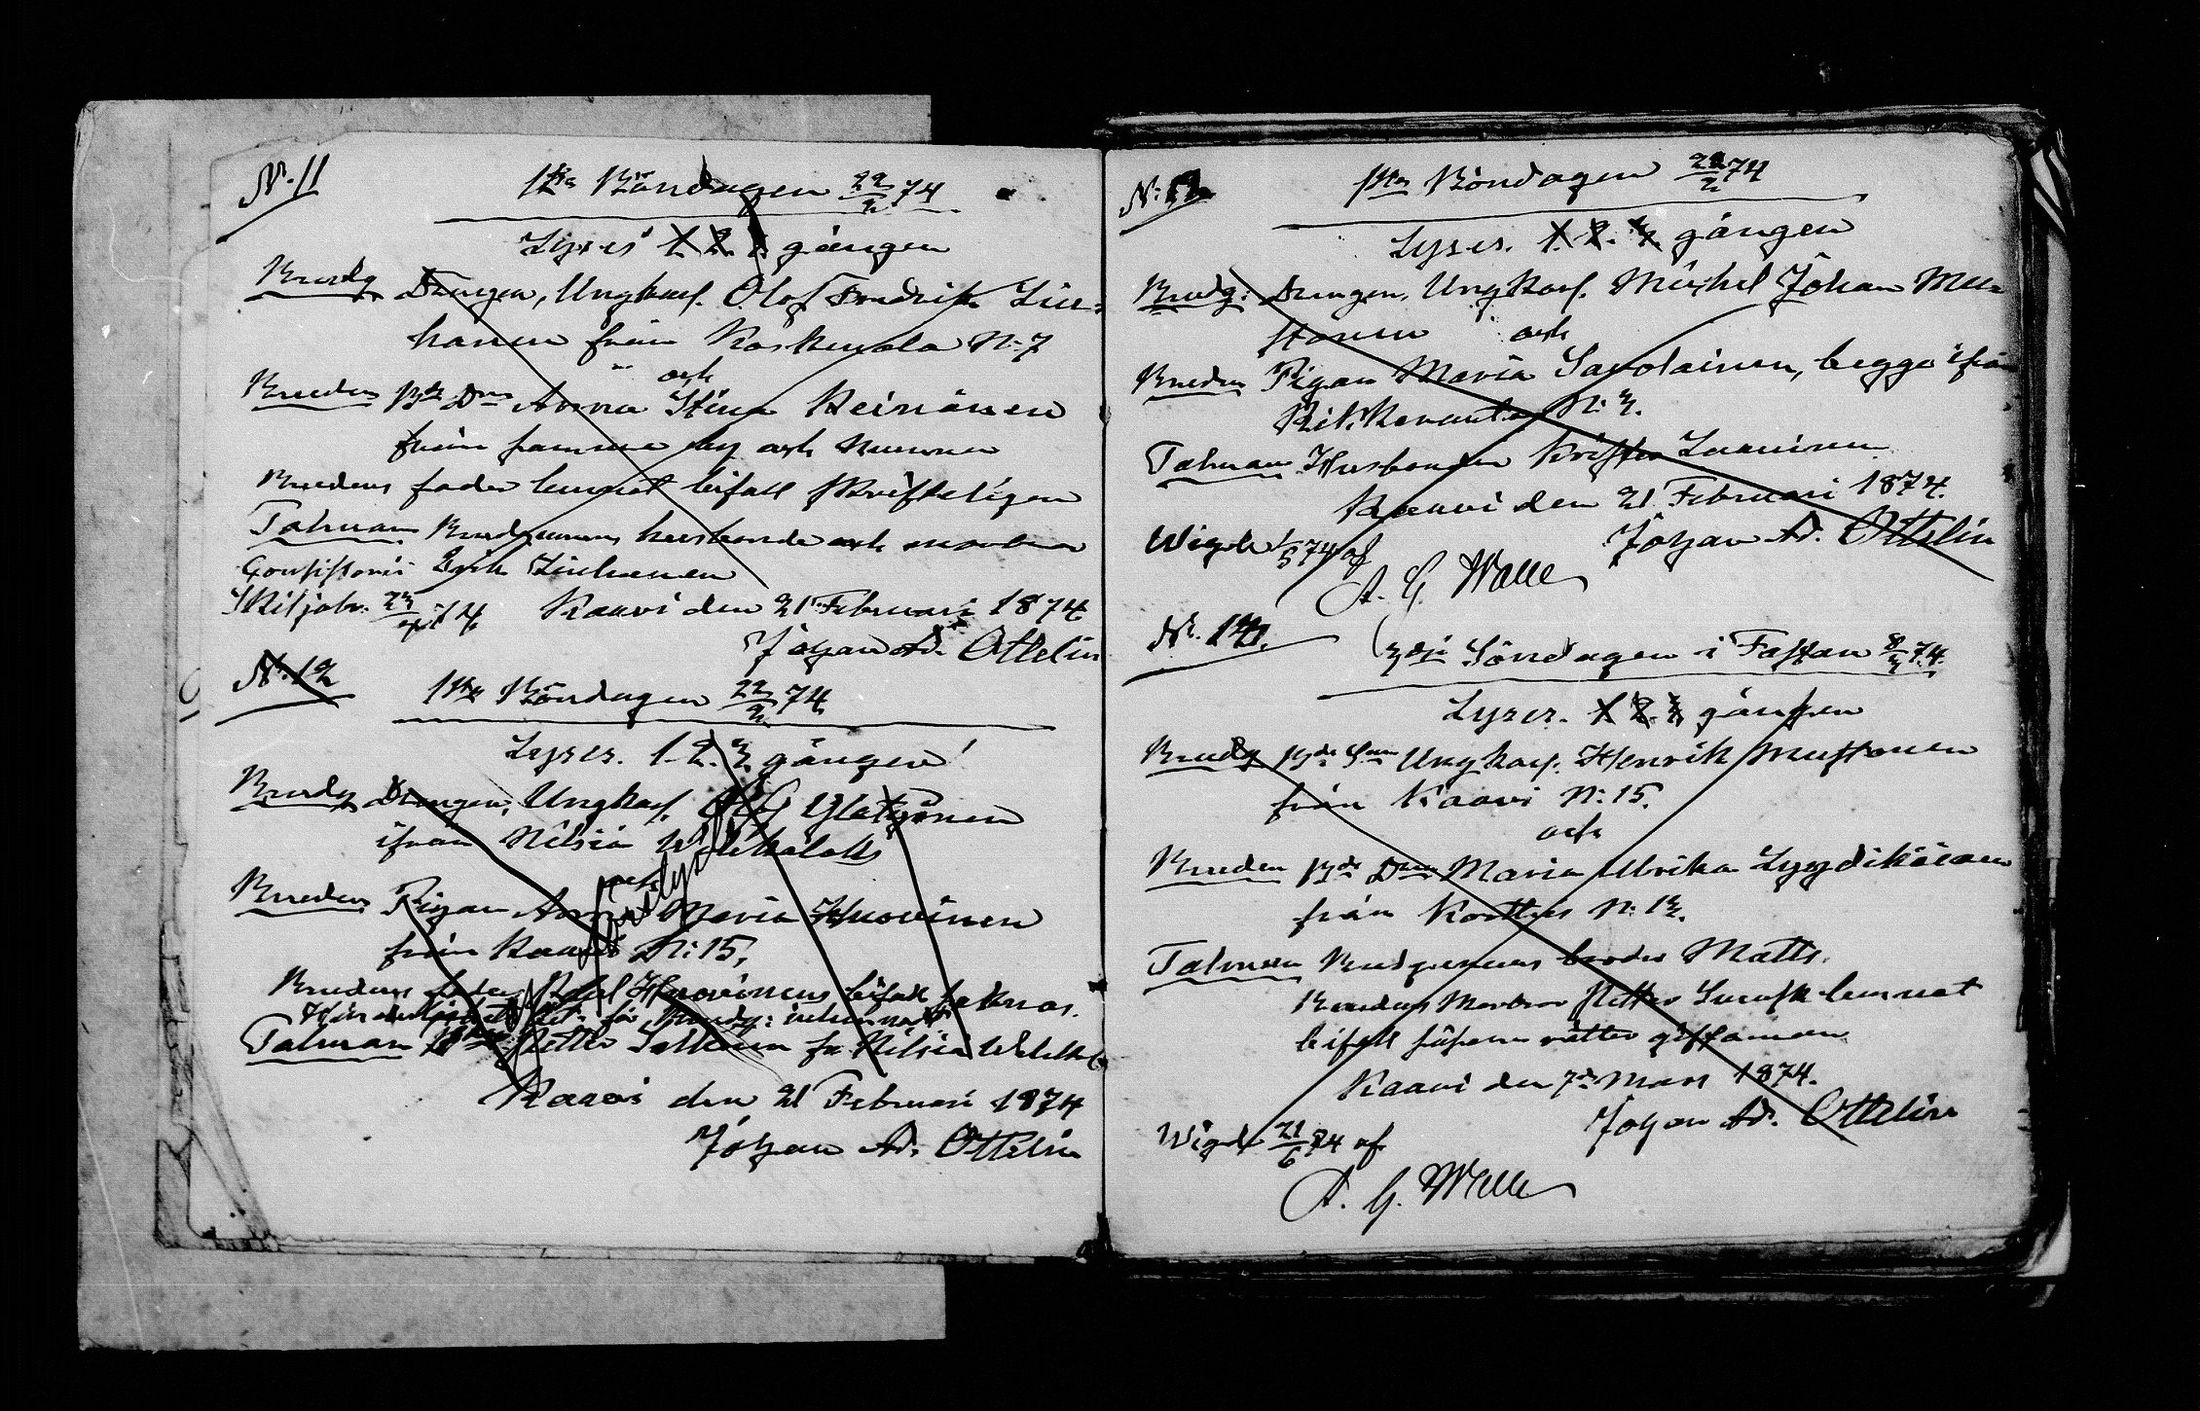 N:11
1sta Böndagen 22/2 74
Lyses 1. 2. 3 gången
Brudg Drängen, Ungkarl. Olof Fredrik Liu-
hanen från Koskenala N:7
och
Bruden Bde Dtr Anna Stina Heinänen
från samma by och nummer
Brudens fader lemnat bifall skrifteligen
Talman Brudgummens husbonde och morbror
Consistorii Erik Liuhanen
Skiljobr. 74 Kaavi den 21 Februari 1874
Johan Ad. Ottelin
N:12
1sta Böndagen 22/2 74
Lyses. 1. 2. 3 gången
Brudg Drängen, Ungkarl.
ifrån Nilsiä
Bruden Pigan Anna Maria Huovinen
från Kaavi N:15,
Brudens fader Huovinens bifall saknas.
Talman Petter fr Nilsiä
Kaavi den 21 Februari 1874
Johan Ad. Ottelin
N:13
1sta Böndagen 22/2 74
Lyses. 1. 2. 3. gången
Brudg: Drängen, Ungkarl. Michel Johan Mu-
stonen och
Bruden Pigan Maria Savolainen, begge ifrån
Rikkaranta N:3.
Talman Husbonden Krister
Kaavi den 21 Februari 1874.
Johan Ad. Ottelin
Wigde 1/5 74 af
A. G. Walle
N:14.
3dje Söndagen i Fastan 8/3 74.
Lyses. 1 2. 3 gången
Brudg Bde Son Ungkarl. Henrik Mustonen
från Kaavi N:15.
och
Bruden Bde Dtr Maria Ulrika Lyydikäinen
från Kortteis N:13.
Talman Brudgummens broder Matts.
Brudens Morbror Petter lemnat
bifall såsom rätter giftoman
Kaavi den 7de Mars 1874.
Johan Ad. Ottelin
Wigde 21/6 74 af
A. G. Walle